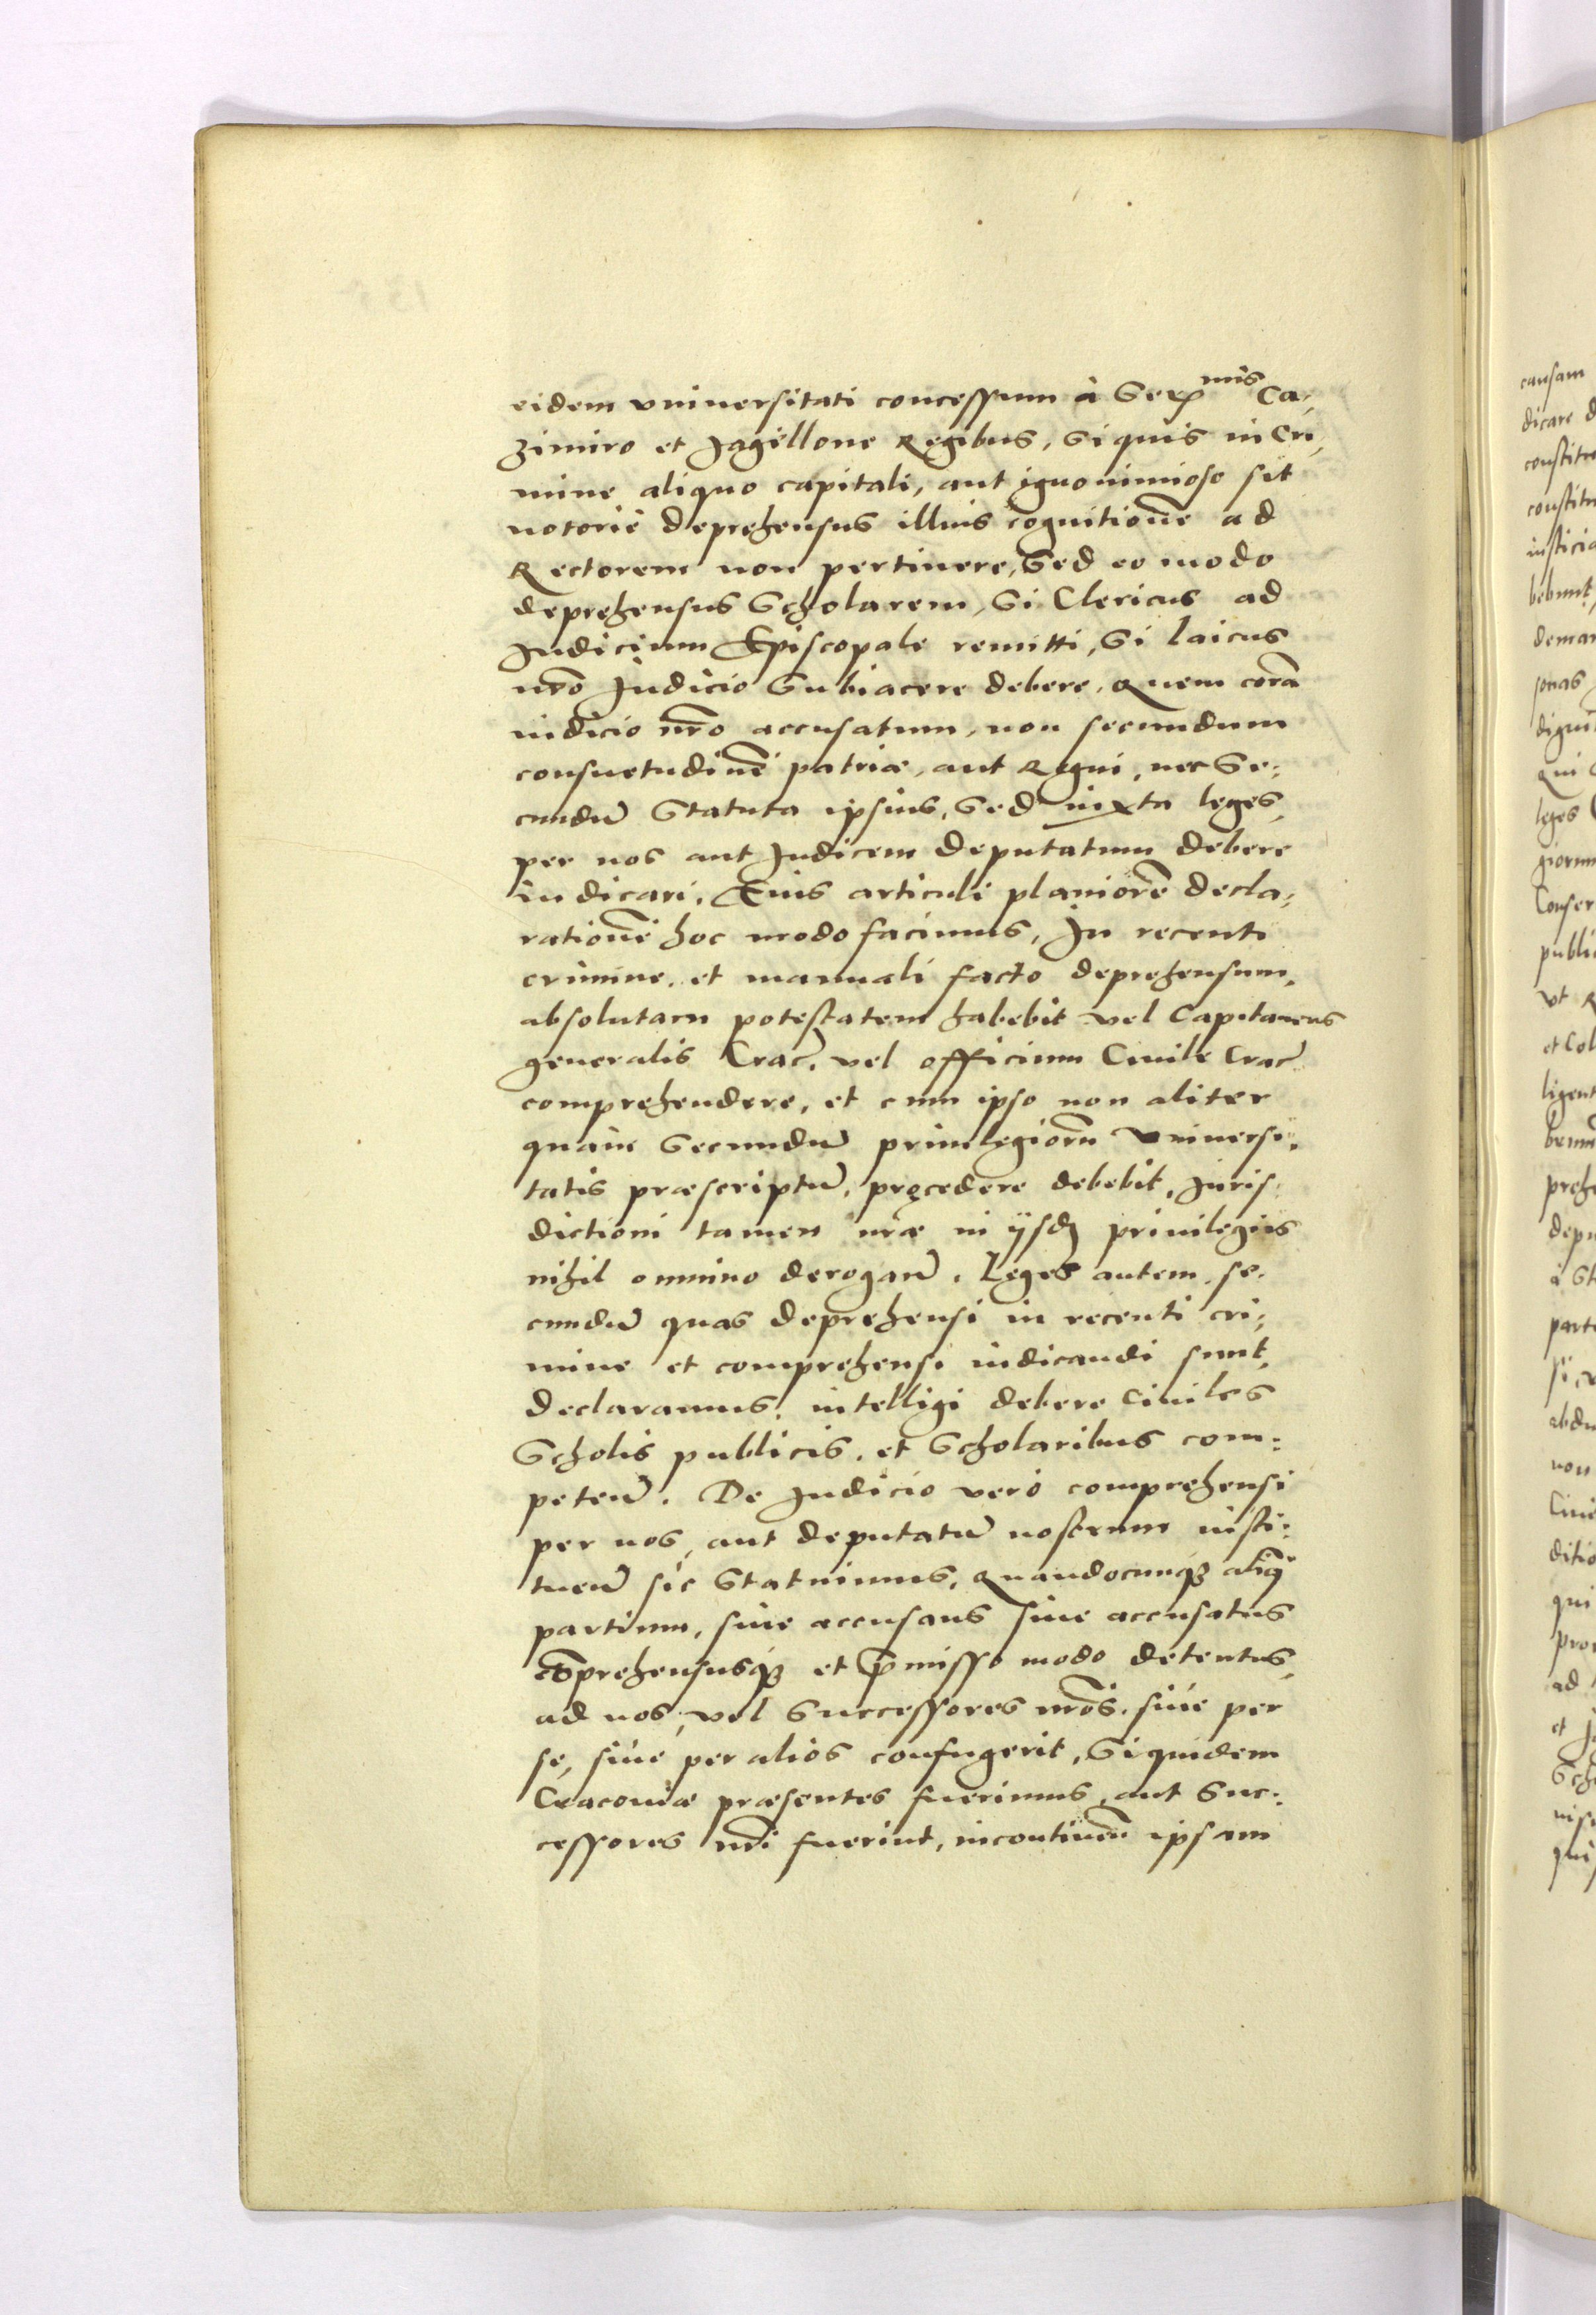 eidem vniuersitati concessum à Serꝑmis Ca,
zimiro et Jagellone Regibus, Si quis in Cri,
mine aliquo capitali, aut ignominioso sit
notoriè deprehensus illius cognitionē ad
Rectorem non pertinere, Sed eo modo
deprehensus Scholarem, Si Clericus ad
Judicium Episcopale remitti, Si laicus
nrō Judicio Subiacere debere, Quem corā
iudicio nrō accusatum, non secundum
consuetudinē patriæ, aut Regni, nec Se:
cundū Statuta ipsius, Sed iuxta leges,
per nos aut Judicem Deputatum debere
iudicari. Cuius articuli planiorē decla,
rationē hoc modo facimus, In recenti
crimine, et manuali facto deprehensum,
absolutam potestatem habebit vel Capitaneus
generalis Crac̄. vel officium Ciuile Crac̄
comprehendere, et cum ipso non aliter
quàm Secundū priuilegiorū Vniuersi,
tatis præscriptū, procedere debebit, Juris,
dictioni tamen nrae in ijsdē priuilegijs
nihil omnino derogan̄. Leges autem, se,
cundū quas deprehensi in recenti cri,
mine et comprehensi iudicandi sunt,
Declaramus, intelligi debere Ciuiles
Scholis publicis, et Scholaribus com:
peten̄. De Judicio verò comprehensi
per nos, aut deputatū nostrum insti:
tuen̄ sic Statuimus, Quandocunqȝ aliqȝ
partium, siue accusans siue accusatus
cōprehensusqȝ et p̄misso modo detentus,
ad nos, vel Successores nrōs, siue per
se, siue per alios confugerit, Siquidem
Cracouiæ præsentes fuerimus, aut Suc:
cessores nrī fuerint, incontinen̄ ipsam
causam